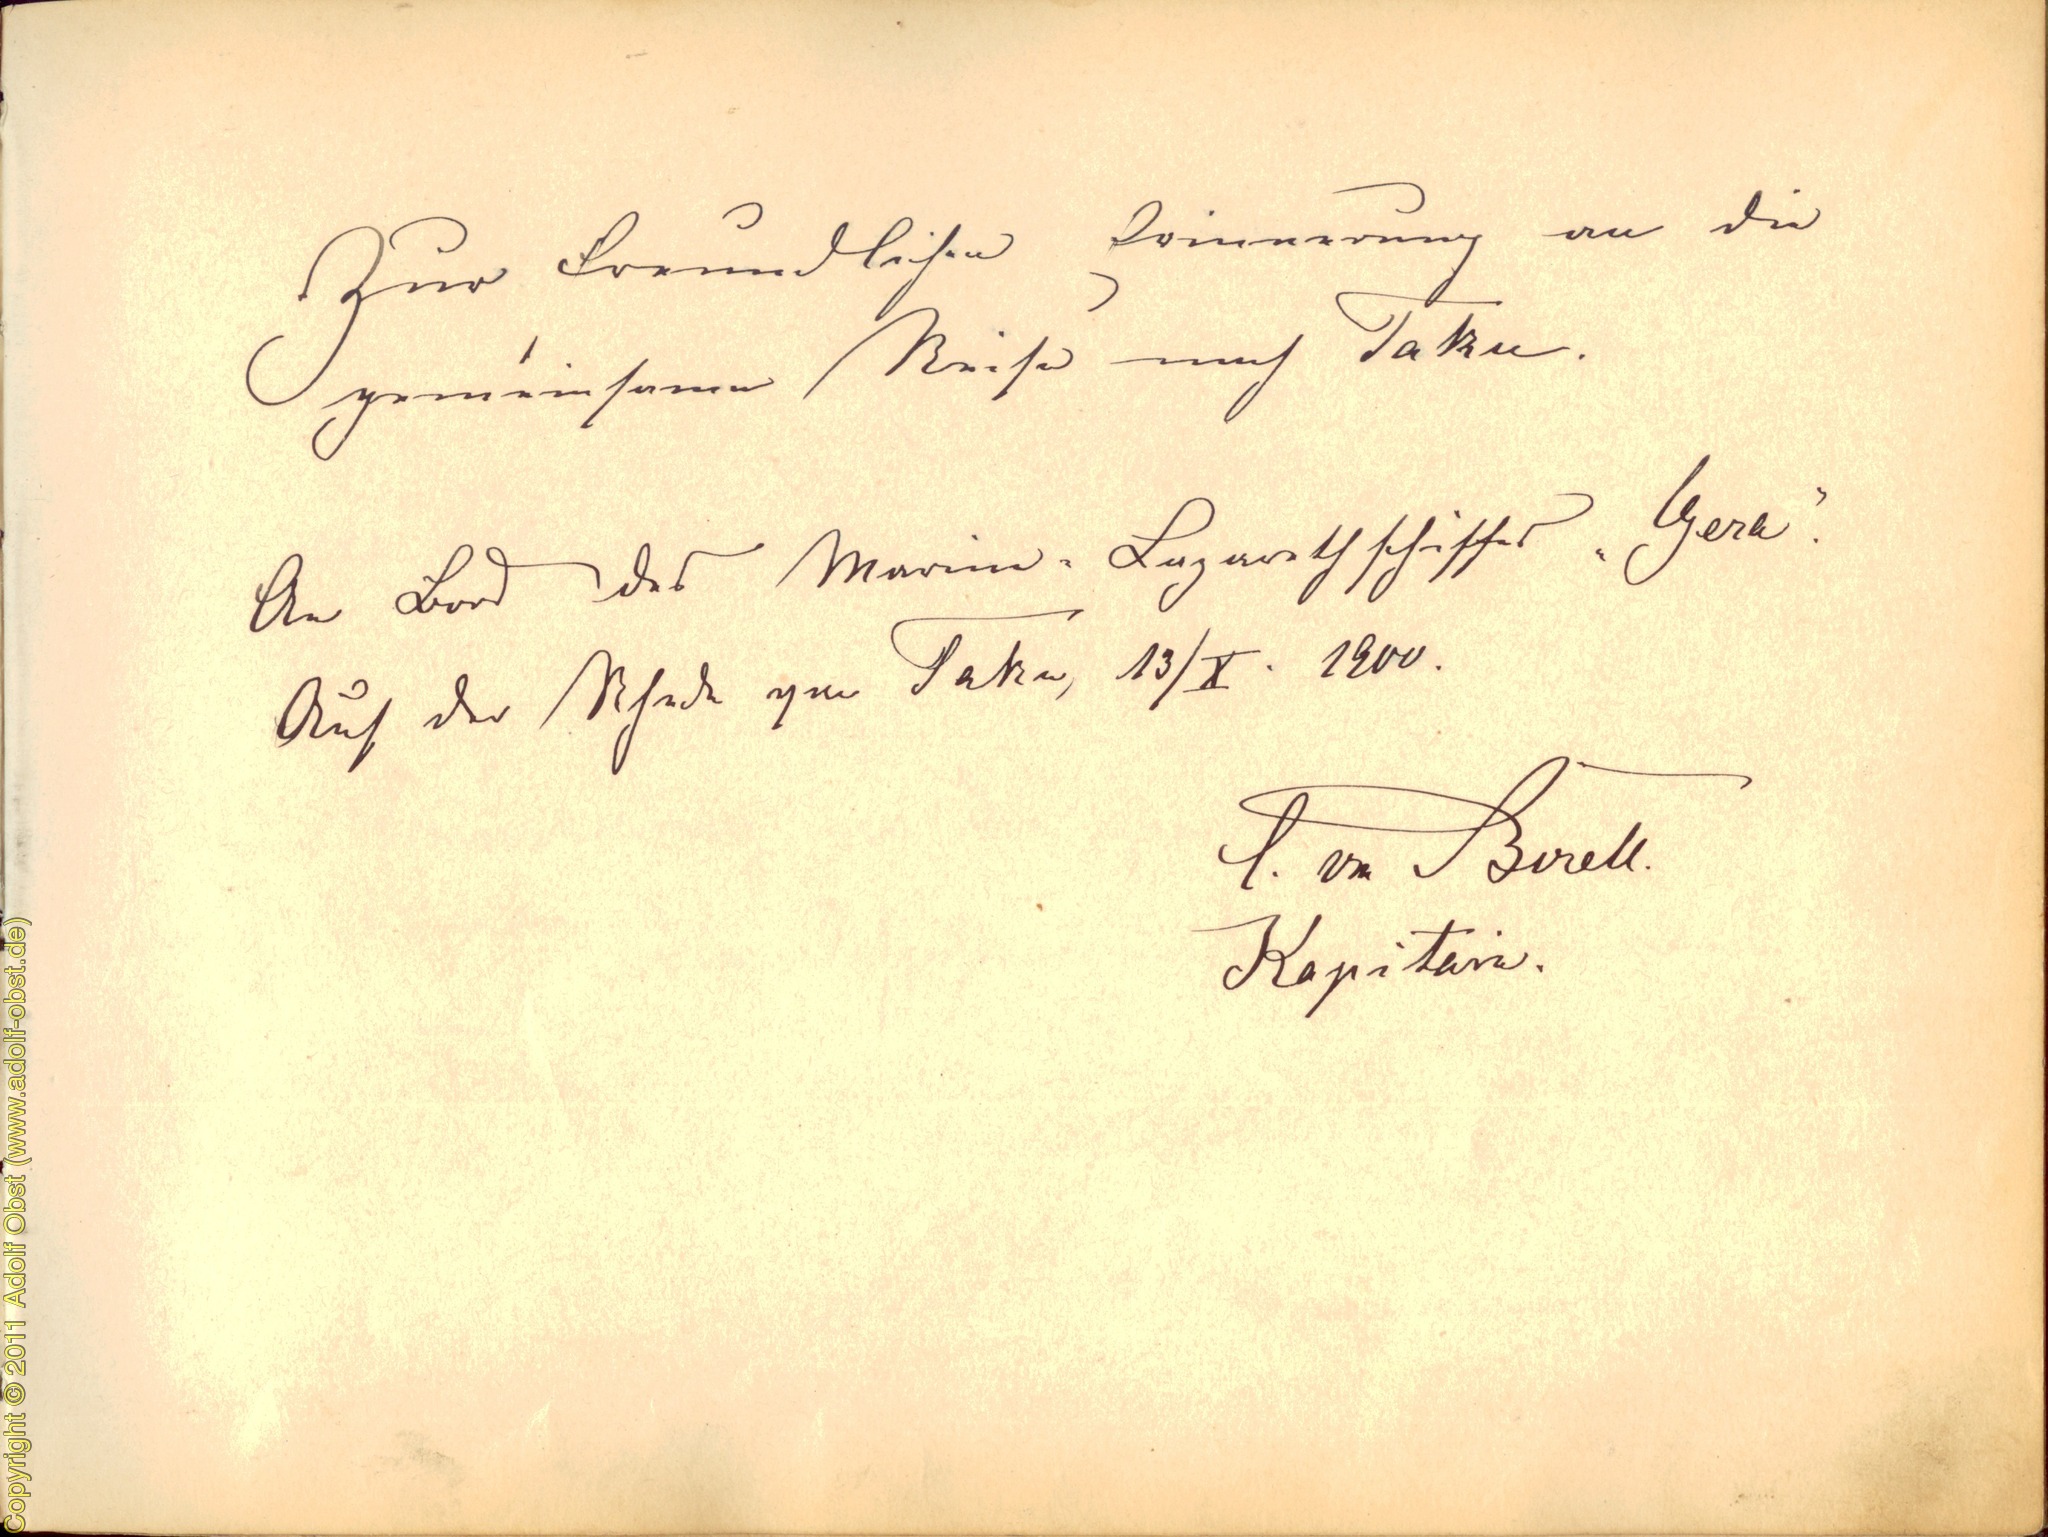 Zur freundlichen Erinnerung an die
gemeinsame Reise nach Taku.
An Bord des Marine-Lazarethschiffes „Gera".
Auf der Rhede von Taku, 13/X. 1900.
C. von Borell.
Kapitän.
Copyright © 2011 Adolf Obst (www.adolf-obst.de)